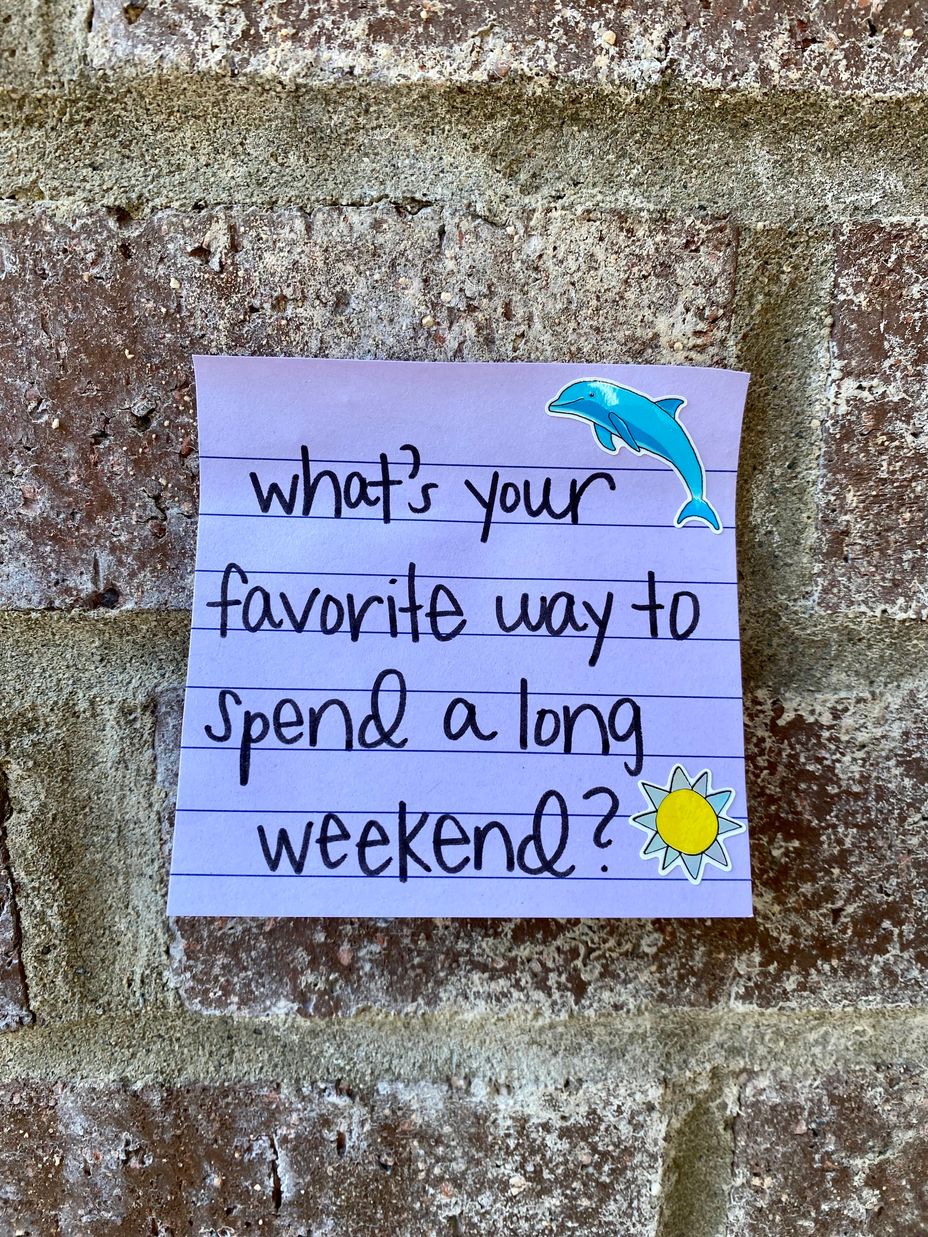 what's your
favorite way to
spend a long
weekend?